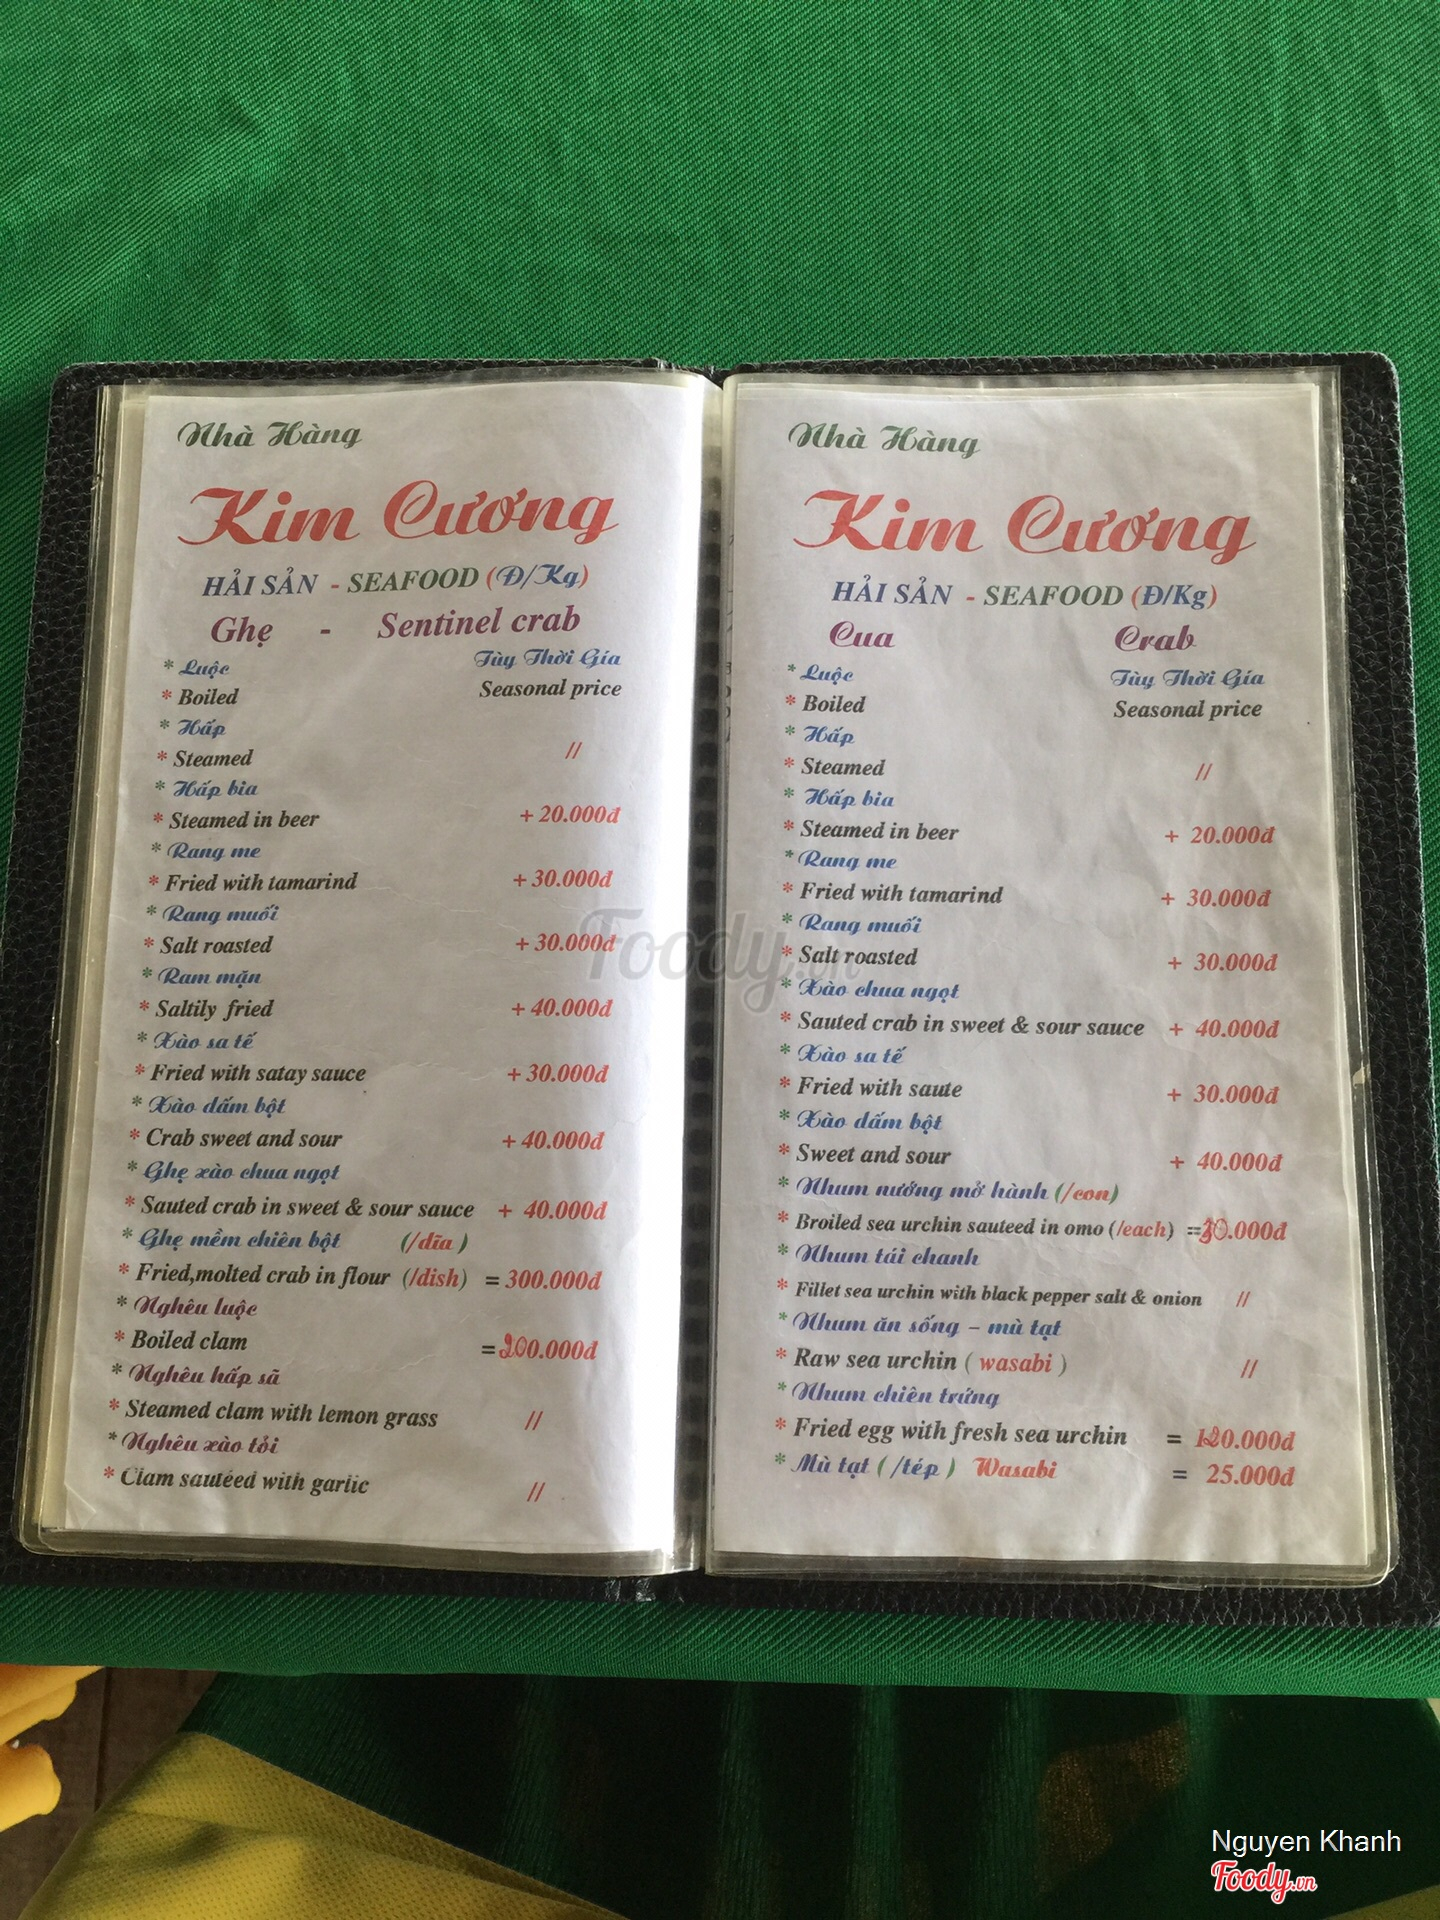 Nhà Hàng
Kim Cương
HẢI SẢN - SEAFOOD (Đ/Kg)
Ghẹ - Sentinel crab
* Luộc Tùy Thời Gía
* Boiled Seasonal price
* Hấp
* Steamed //
* Hấp bia
* Steamed in beer + 20.000đ
* Rang me
* Fried with tamarind + 30.000đ
* Rang muối
* Salt roasted + 30.000đ
* Ram mặn
* Saltily fried + 40.000đ
* Xào sa tế
* Fried with satay sauce + 30.000đ
* Xào dấm bột
* Crab sweet and sour + 40.000đ
* Ghẹ xào chua ngọt
* Sauted crab in sweet & sour sauce + 40.000đ
* Ghẹ mềm chiên bột (/dĩa)
* Fried,molted crab in flour (/dish) = 300.000đ
* Nghêu luộc
* Boiled clam = 200.000đ
* Nghêu hấp sã
* Steamed clam with lemon grass //
* Nghêu xào tỏi
* Clam sauteed with garlic //
Nhà Hàng
Kim Cương
HẢI SẢN - SEAFOOD (Đ/Kg)
Cua Crab
* Luộc Tùy Thời Gía
* Boiled Seasonal price
* Hấp
* Steamed //
* Hấp bia
* Steamed in beer + 20.000đ
* Rang me
* Fried with tamarind + 30.000đ
* Rang muối
* Salt roasted + 30.000đ
* Xào chua ngọt
* Sauted crab in sweet & sour sauce + 40.000đ
* Xào sa tế
* Fried with saute + 30.000đ
* Xào dấm bột
* Sweet and sour + 40.000đ
* Nhum nướng mở hành (/con)
* Broiled sea urchin sauteed in omo (/each) =
* Nhum tái chanh
* Fillet sea urchin with black pepper salt & onion //
* Nhum ăn sống - mù tạt
* Raw sea urchin ( wasabi ) //
* Nhum chiên trứng
* Fried egg with fresh sea urchin = 120.000đ
* Mù tạt ( /tép ) Wasabi = 25.000đ
Foody.vn
Nguyen Khanh
Foody.vn